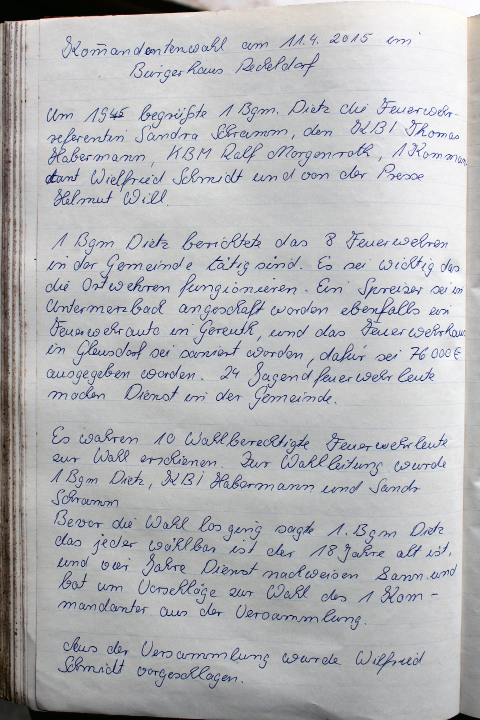 Kom̄andantenwahl am 11.4. 2015 im
Bürgerhaus Reckeldorf
Um 19⁴⁵ begrüßte 1 Bgm. Dietz die Feuerwehr-
referentin Sandra Schramm, den KBI Thomas
Habermann, KBM Ralf Morgenroth, 1 Komman
dant Wielfried Schmidt und von der Presse
Helmut Will.
1 Bgm Dietz berichtete das 8 Feuerwehren
in der Gemeinde tätig sind. Es sei wichtig das
die Ortwehren fungionieren. Ein Spreizer sei in
Untermerzbach angeschaft worden ebenfalls ein
Feuerwehrauto in Gereuth, und das Feuerwehrhaus
in Gleusdorf sei saniert worden, dafür sei 76 000 €
ausgegeben worden. 24 Jugendfeuerwehrleute
machen Dienst in der Gemeinde.
Es wahren 10 Wahlberechtigte Feuerwehrleute
zur Wahl erschienen. Zur Wahlleitung wurde
1 Bgm Dietz, KBI Habermann und Sandr
Schramm
Bevor die Wahl los ging sagte 1. Bgm Dietz
das jeder wählbar ist der 18 Jahre alt ist,
und vier Jahre Dienst nachweisen kann und
bat um Vorschläge zur Wahl des 1 Kom-
mandanten aus der Versammlung.
Aus der Versammlung wurde Wilfried
Schmidt vorgeschlagen.